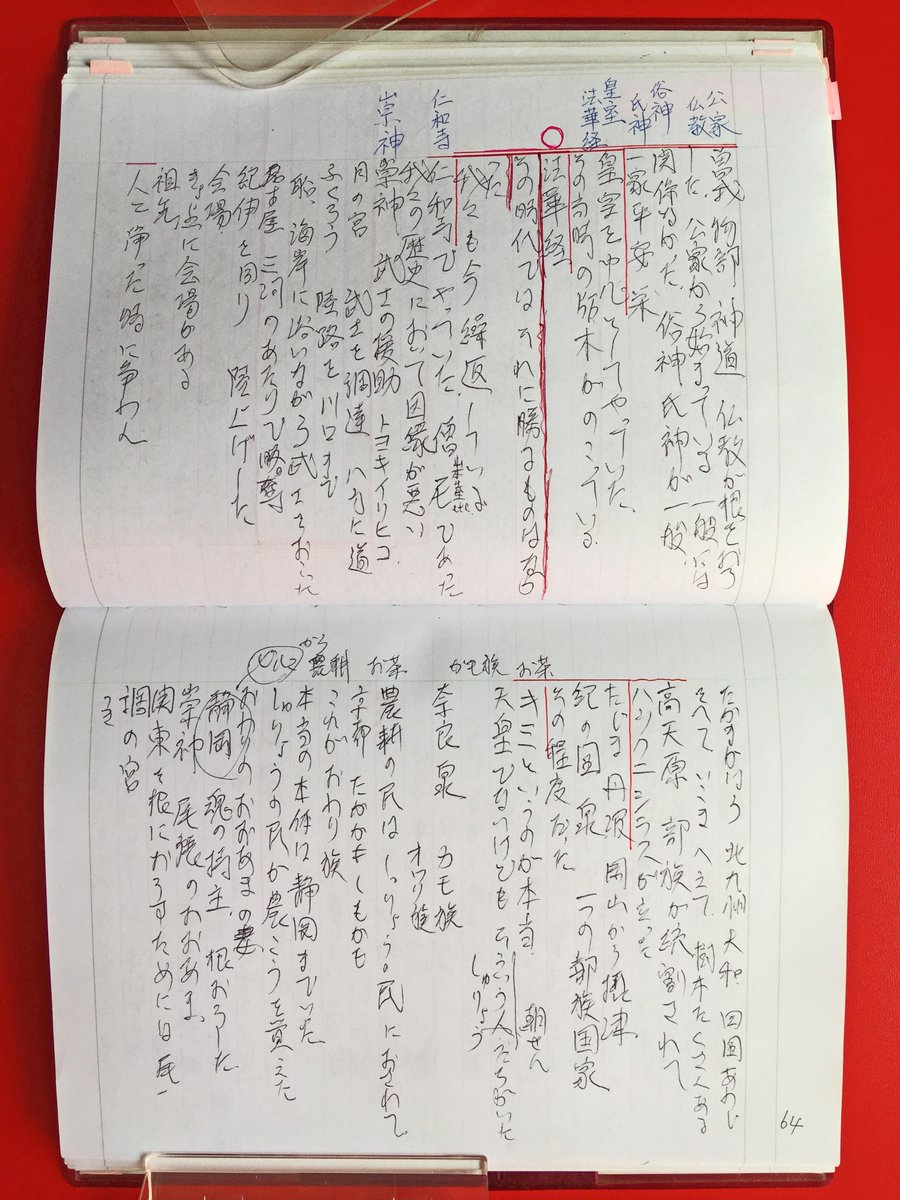 公家
仏教
俗神
氏神
皇室
法華経
仁和寺
崇神
曽我 物部 神道 仏教が根をおろ
した、公家から始まっている 一般には
関係なかった、俗神氏神が一般
一家平安 栄
皇室を中心としてやっていた、
その当時の版木がのこっている
法華経
その時代ではそれに勝るものはなか
った
我々も今 繰返している
仁和寺でやっていた 僧 であった
我々の歴史において因縁が悪い
崇神 武士の援助 トヨキイリヒコ
月の宮 武士を調達 八方に道
ふくろう 陸路を川口まで
船、海岸に沿いながら武士をおいた
名古屋 三河のあたりで
紀伊を回り 陸上げした
会場
拠点に会場がある
祖先
人と争った時に争わん
64
お茶
かも族
お茶
農耕
から
たかまがはら 北九州 大和 四国あわじ
そへて いこま へえて 樹木たくさんある
高天原 部族が統割されて
ハツクニシラスが立った
たじま 丹波 岡山から摂津
紀の国 泉 一つの部族国家
その程度だった
キミというのが本当 朝せん
天皇でないけどもそういう人たちがいた
しゅりょう
奈良 泉 カモ族
オワリ族
農耕の民は しゅりょう民におされて
京都 たかがもしもがも
これがおわり族
本当の本体は静岡までいった
しゅりょうの民が農こうを覚えた
おわりのおおあまの妻
静岡 魂の持主、根おろした
崇神 尾張のおおあま
関東を根におろすためには 民一
調の宮